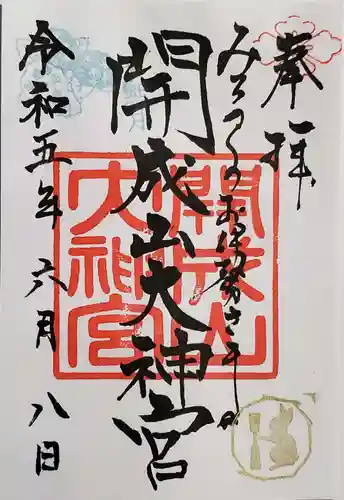 奉拝
みちのくのお伊勢さま
開成山大神宮
開成山
大神宮
令和五年六月八日